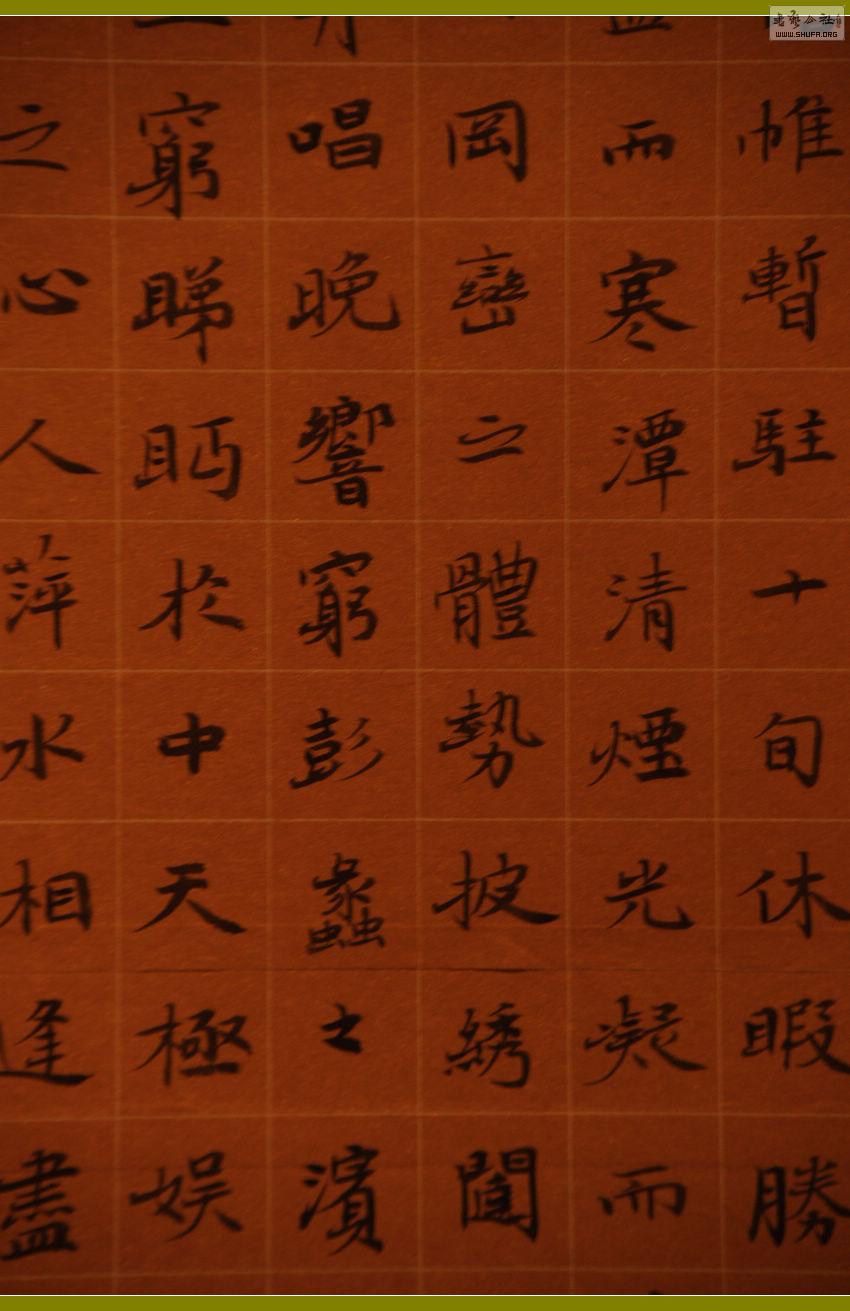 帷暫駐十旬休暇勝
而寒潭清煙光凝而
岡巒之體勢披綉闥
唱晚響窮彭蠡之濱
窮睇眄於中天極娛
之心人萍水相逢盡
WWW.SHUFA.ORG